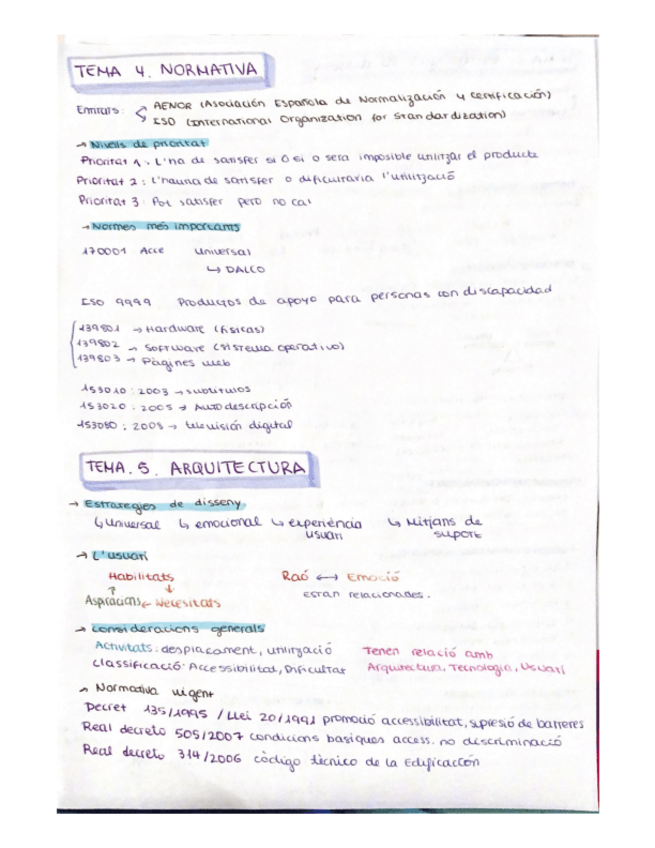 TEMA 4. NORMATIVA
Entitats: AENOR (Asociación Española de Normalización y certificación)
ISO (International Organization for Standardization)
→ Nivells de prioritat
Prioritat 1: L'ha de satisfer si ó si o sera imposible utilitzar el producte
Prioritat 2: L'hauria de satisfer o dificultaria l'utilització
Prioritat 3: Pot satisfer pero no cal
→ Normes més importants
170001 Acce Universal
↳ DALCO
ISO 9999 Productos de apoyo para personas con discapacidad
139801 → Hardware (físicas)
139802 → Software (sistema operativo)
139803 → Pàgines web
153010:2003 → subtítulos
153020:2005 → Autodescripción
153050:2005 → televisión digital
TEMA. 5. ARQUITECTURA
→ Estrategies de disseny
↳ Universal ↳ emocional ↳ experiència usuari ↳ Mitjans de suport
→ L'usuari
Habilitats Raó ↔ Emoció
Aspiracions ← Necesitats estan relacionades.
→ consideracions generals
Activitats: desplaçament, utilització Tenen relació amb
Classificació: Accessibilitat, Dificultat Arquitectura, Tecnologia, Usuari
→ Normativa vigent
Decret 135/1995 / Llei 20/1991 promoció accessibilitat, supresió de barreres
Real decreto 505/2007 condicions basiques access. no discriminació
Real decreto 314/2006 còdigo técnico de la Edificacción